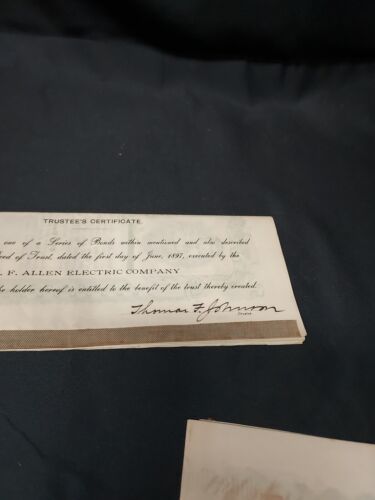 TRUSTEE'S CERTIFICATE.
one of a Series of Bonds within mentioned and also described
Deed of Trust, dated the first day of June, 1897, executed by the
F. ALLEN ELECTRIC COMPANY
the holder hereof is entitled to the benefit of the trust thereby created.
Thomas F. Johnson
Trustee